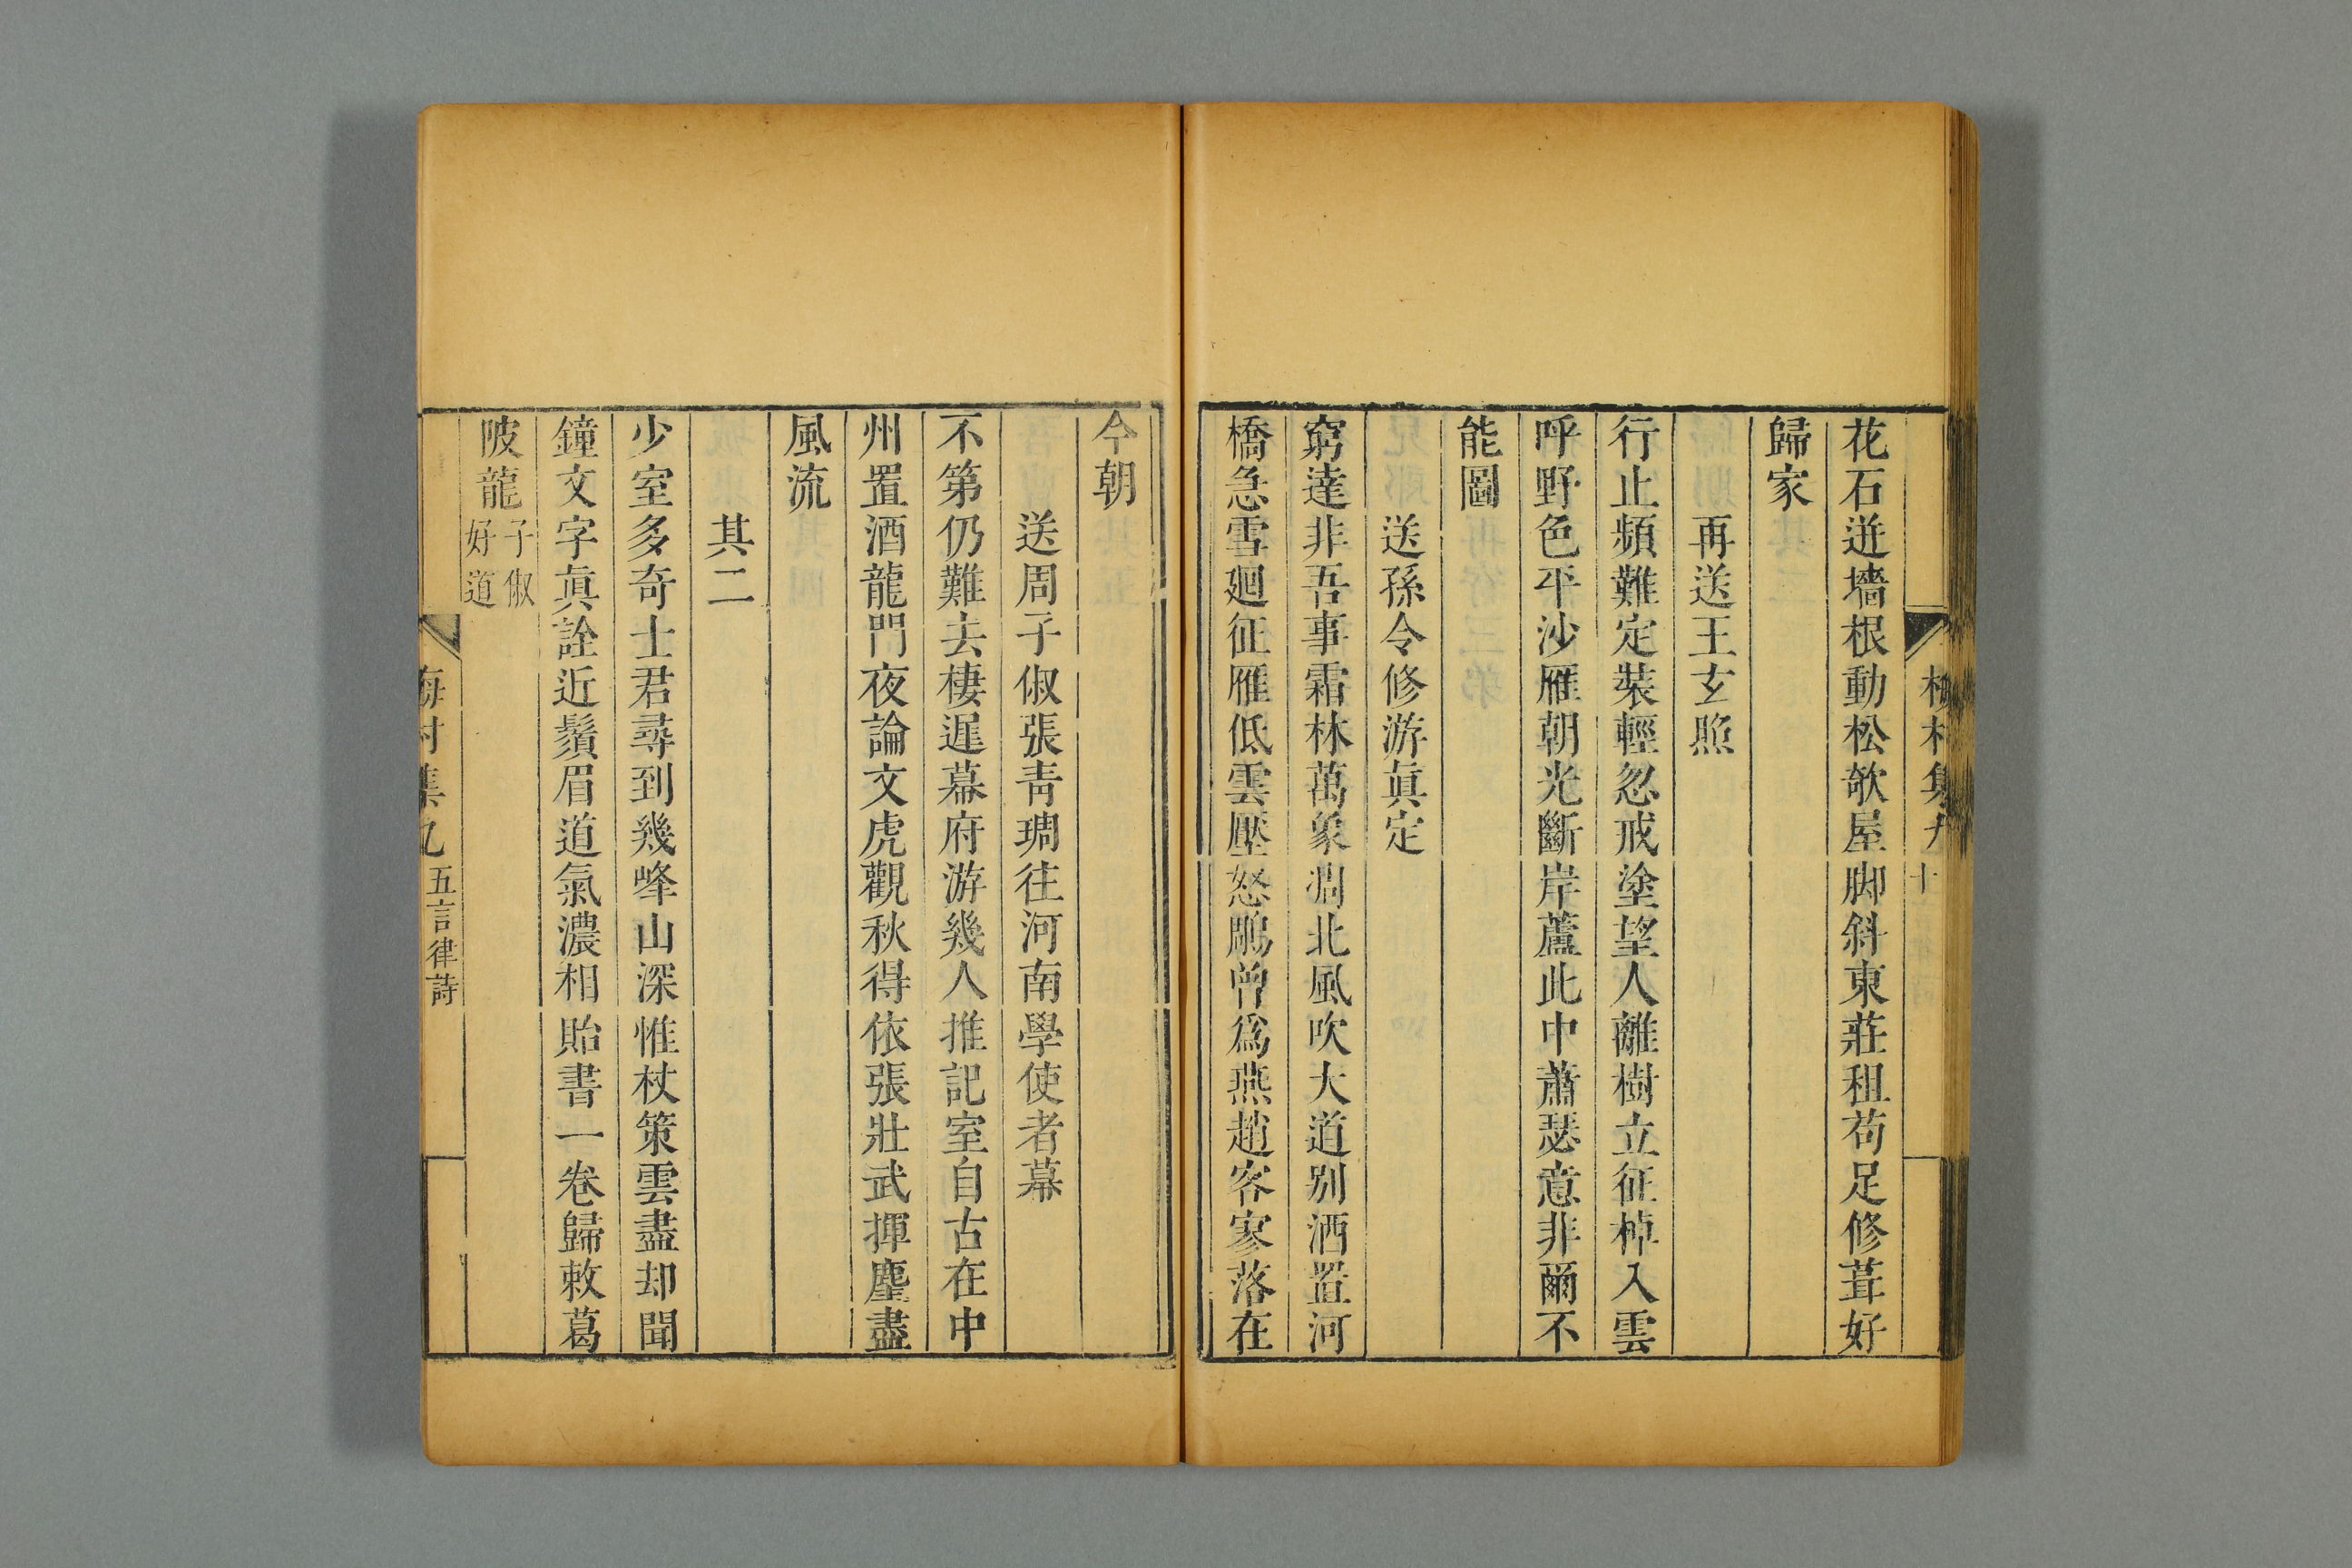 花石迸墻根動松欹屋脚斜東莊租茍足修葺好
歸家
再送王玄照
行止頻難定裝輕忽戒塗望人離樹立征棹入雲
呼野色平沙雁朝光斷岸蘆此中蕭瑟意非爾不
能圖
送孫令修游眞定
窮達非吾事霜林萬象凋北風吹大道别酒置河
橋急雪廻征雁低雲壓怒鵰曾爲燕趙客寥落在
今朝
送周子俶張靑琱往河南學使者幕
不第仍難去棲遲幕府游幾人推記室自古在中
州置酒龍門夜論文虎觀秋得依張壯武揮麈盡
風流
其二
少室多奇士君尋到幾峰山深惟杖策雲盡却聞
鐘文字眞詮近鬚眉道氣濃相貽書一卷歸敕葛
陂龍子俶
好道
梅村集九
五言律詩